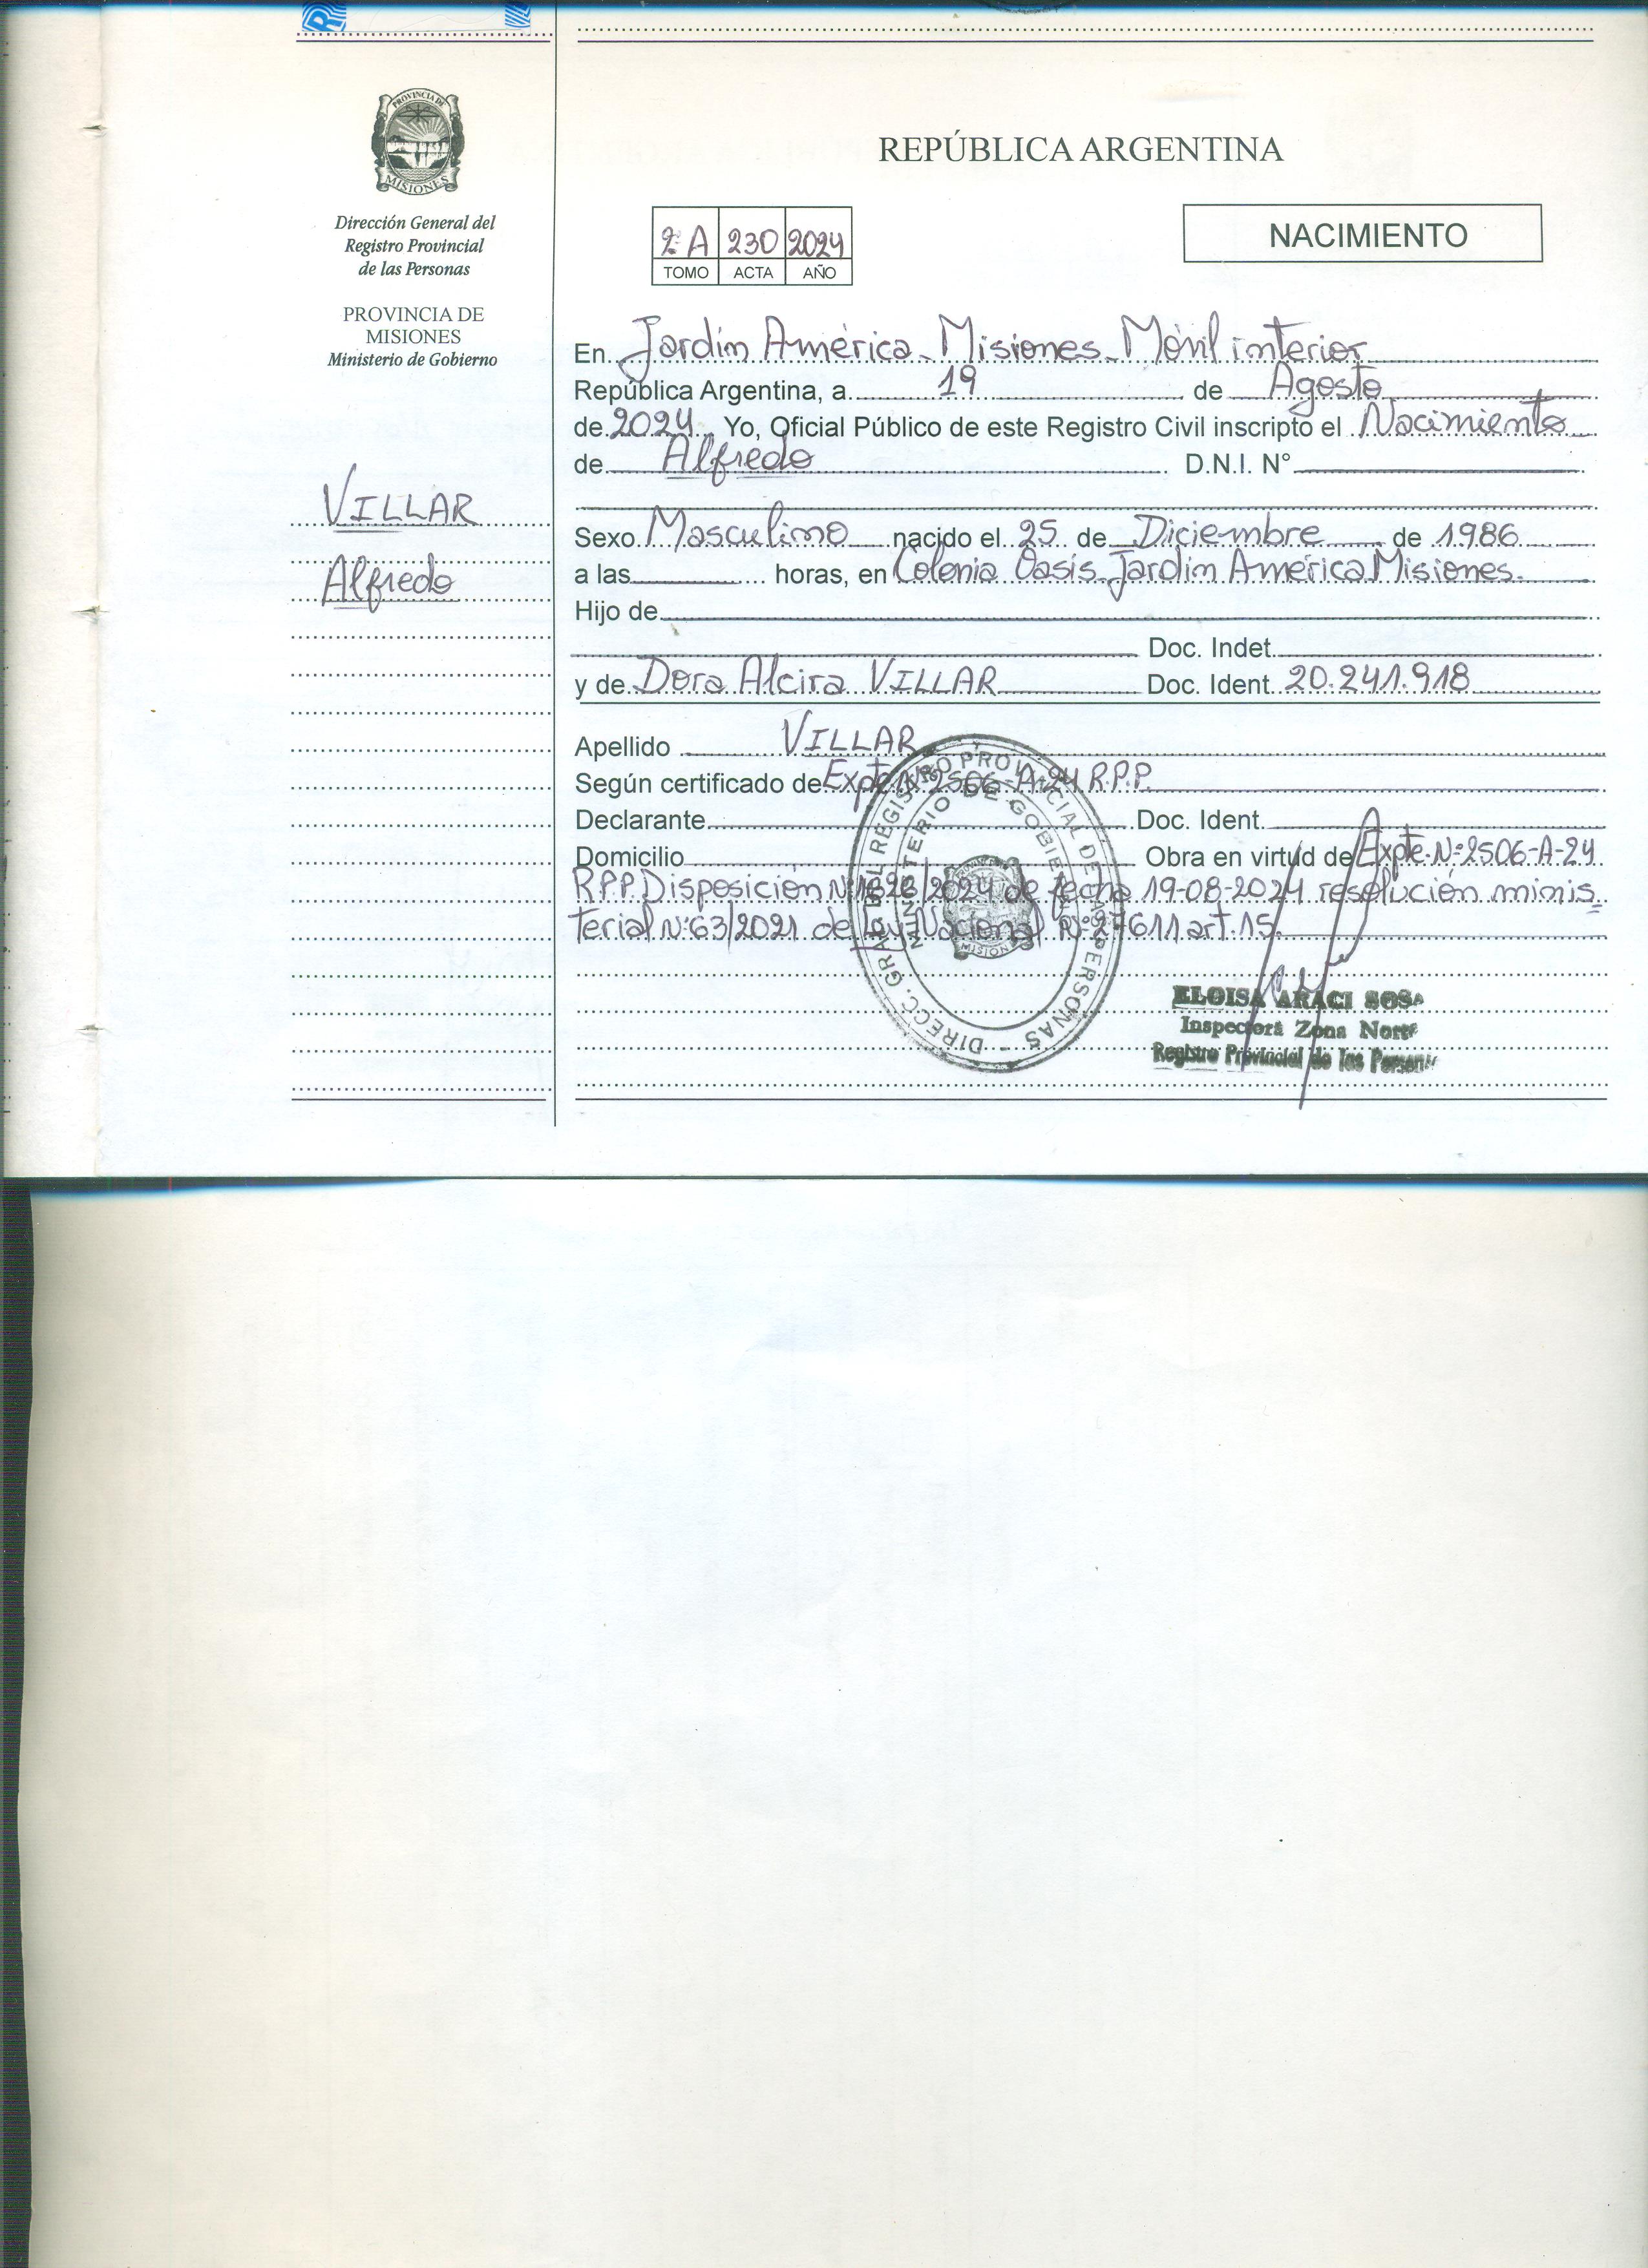 PROVINCIA DE
MISIONES
Dirección General del
Registro Provincial
de las Personas
PROVINCIA DE
MISIONES
Ministerio de Gobierno
VILLAR
Alfredo
REPÚBLICA ARGENTINA
2ª A 230 2024
TOMO ACTA AÑO
NACIMIENTO
En Jardín América - Misiones - Móvil interior
República Argentina, a 19 de Agosto
de 2024 Yo, Oficial Público de este Registro Civil inscripto el Nacimiento
de Alfredo D.N.I. N°
Sexo Masculino nacido el 25 de Diciembre de 1986
a las horas, en Colonia Oasis - Jardín América Misiones.
Hijo de
Doc. Indet.
y de Dora Alcira VILLAR Doc. Ident. 20.241.918
Apellido VILLAR
Según certificado de Expte Nº 2506-A-24 R.P.P.
Declarante Doc. Ident.
Domicilio Obra en virtud de Expte. Nº 2506-A-24
R.P.P. Disposición Nº /2024 de fecha 19-08-2024 resolución minis=
terial Nº 63/2021 de Ley Nacional Nº 27611 art. 15.
DIRECC. GRAL. DEL REGISTRO PROVINCIAL DE LAS PERSONAS
MINISTERIO DE GOBIERNO
MISIONES
ELOISA ARACI SOSA
Inspectora Zona Norte
Registro Provincial de las Personas